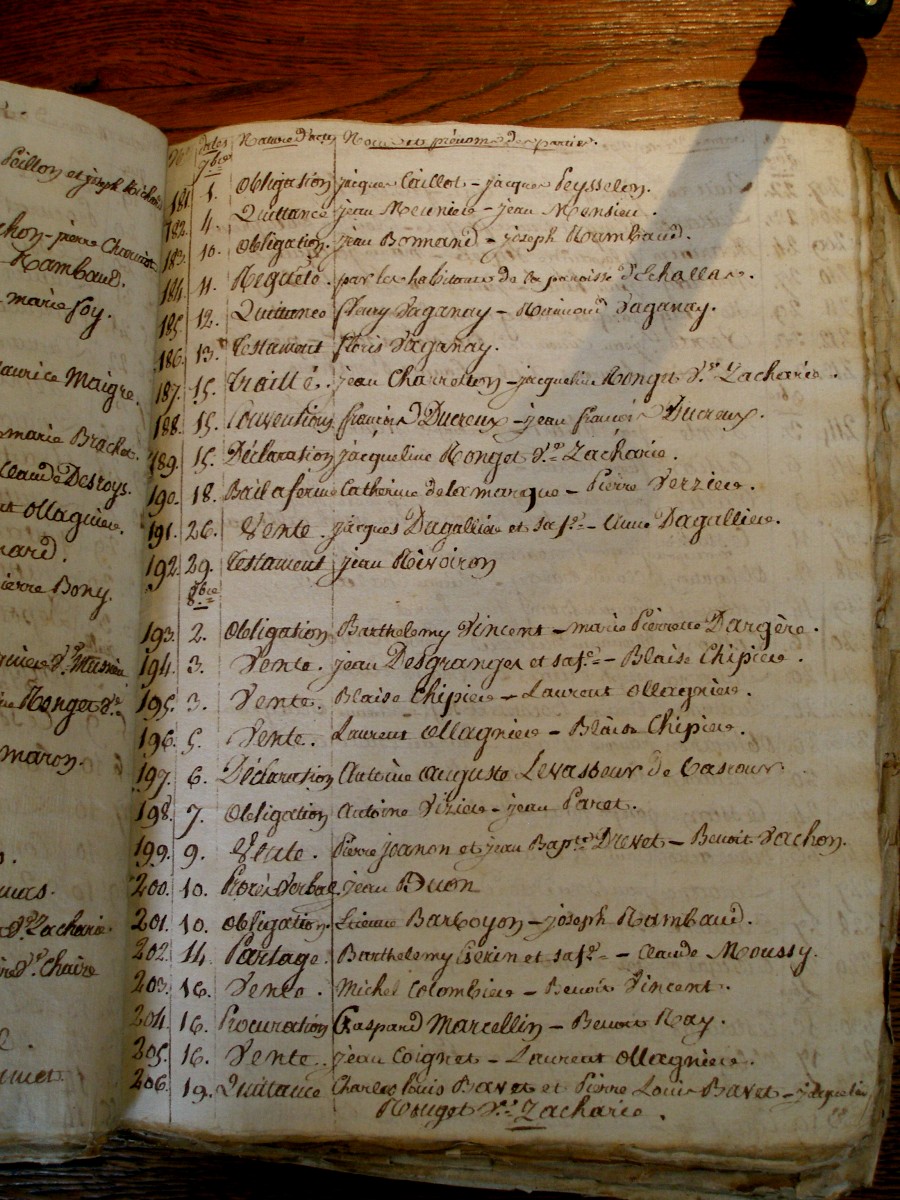 Peillon et joseph Richard
chon - pierre Charriot
Rambaud.
marie foy.
aurice Maigre.
marie Brachet.
Claude Desroys.
et Ollagnier.
nard.
ierre Bony.
ve Monget Ve
maron.
Ve Zacharie
Ve Chaize
Nos Dates Nature d'actes Noms et prénoms des parties.
7bre
181. 1. Obligation jacques Caillot - jacques Peysselon.
182. 4. Quittance jean Meunier - jean Mensieu.
183. 10. Obligation. jean Bomand - joseph Rambaud.
184. 11. Requête. par les habitans de la paroisse d'Echallas.
185. 12. Quittance fleury Vaganay - Raimond Vaganay.
186. 13. Testament floris Vaganay.
187. 15. Traitté. jean Charretton - jacqueline Monget Ve Zacharie.
188. 15. Conventions francois Ducreux - jean francois Ducreux.
189. 15. Déclaration jacqueline Monget Ve Zacharie.
190. 18. Bail a ferme Catherine delamarque - Pierre Verzier.
191. 26. Vente. jacques Dagallier et sa fe - Anne Dagallier.
192. 29. Testament jean Rivoiron
8bre
193. 2. Obligation Barthelemy Vincent - marie Pierrette Dargère.
194. 3. Vente. jean Desgranges et sa fe - Blaise Chipier.
195. 3. Vente. Blaise Chipier - Laurent Ollagnier.
196. 5. Vente. Laurent Ollagnier - Blaise Chipier.
197. 6. Déclaration Antoine Auguste Levasseur de
198. 7. Obligation Antoine Vizier - jean Paret.
199. 9. Vente. Pierre joanon et jean Bapte Drevet - Benoit Vachon.
200. 10. Procès Verbal. jean Buon
201. 10. Obligation. Etienne Barboyon - joseph Rambaud.
202. 14. Partage. Barthelemy Gerin et sa fe - Claude Moussy.
203. 16. Vente. Michel Colombier - Benoit Vincent.
204. 16. Procuration Gaspard Marcellin - Benoit Ray.
205. 16. Vente. jean Coignet - Laurent Ollagnier.
206. 19. Quittance Charles Louis Bavet et Pierre Louis Bavet - jacqueline
Monget Ve Zacharie.